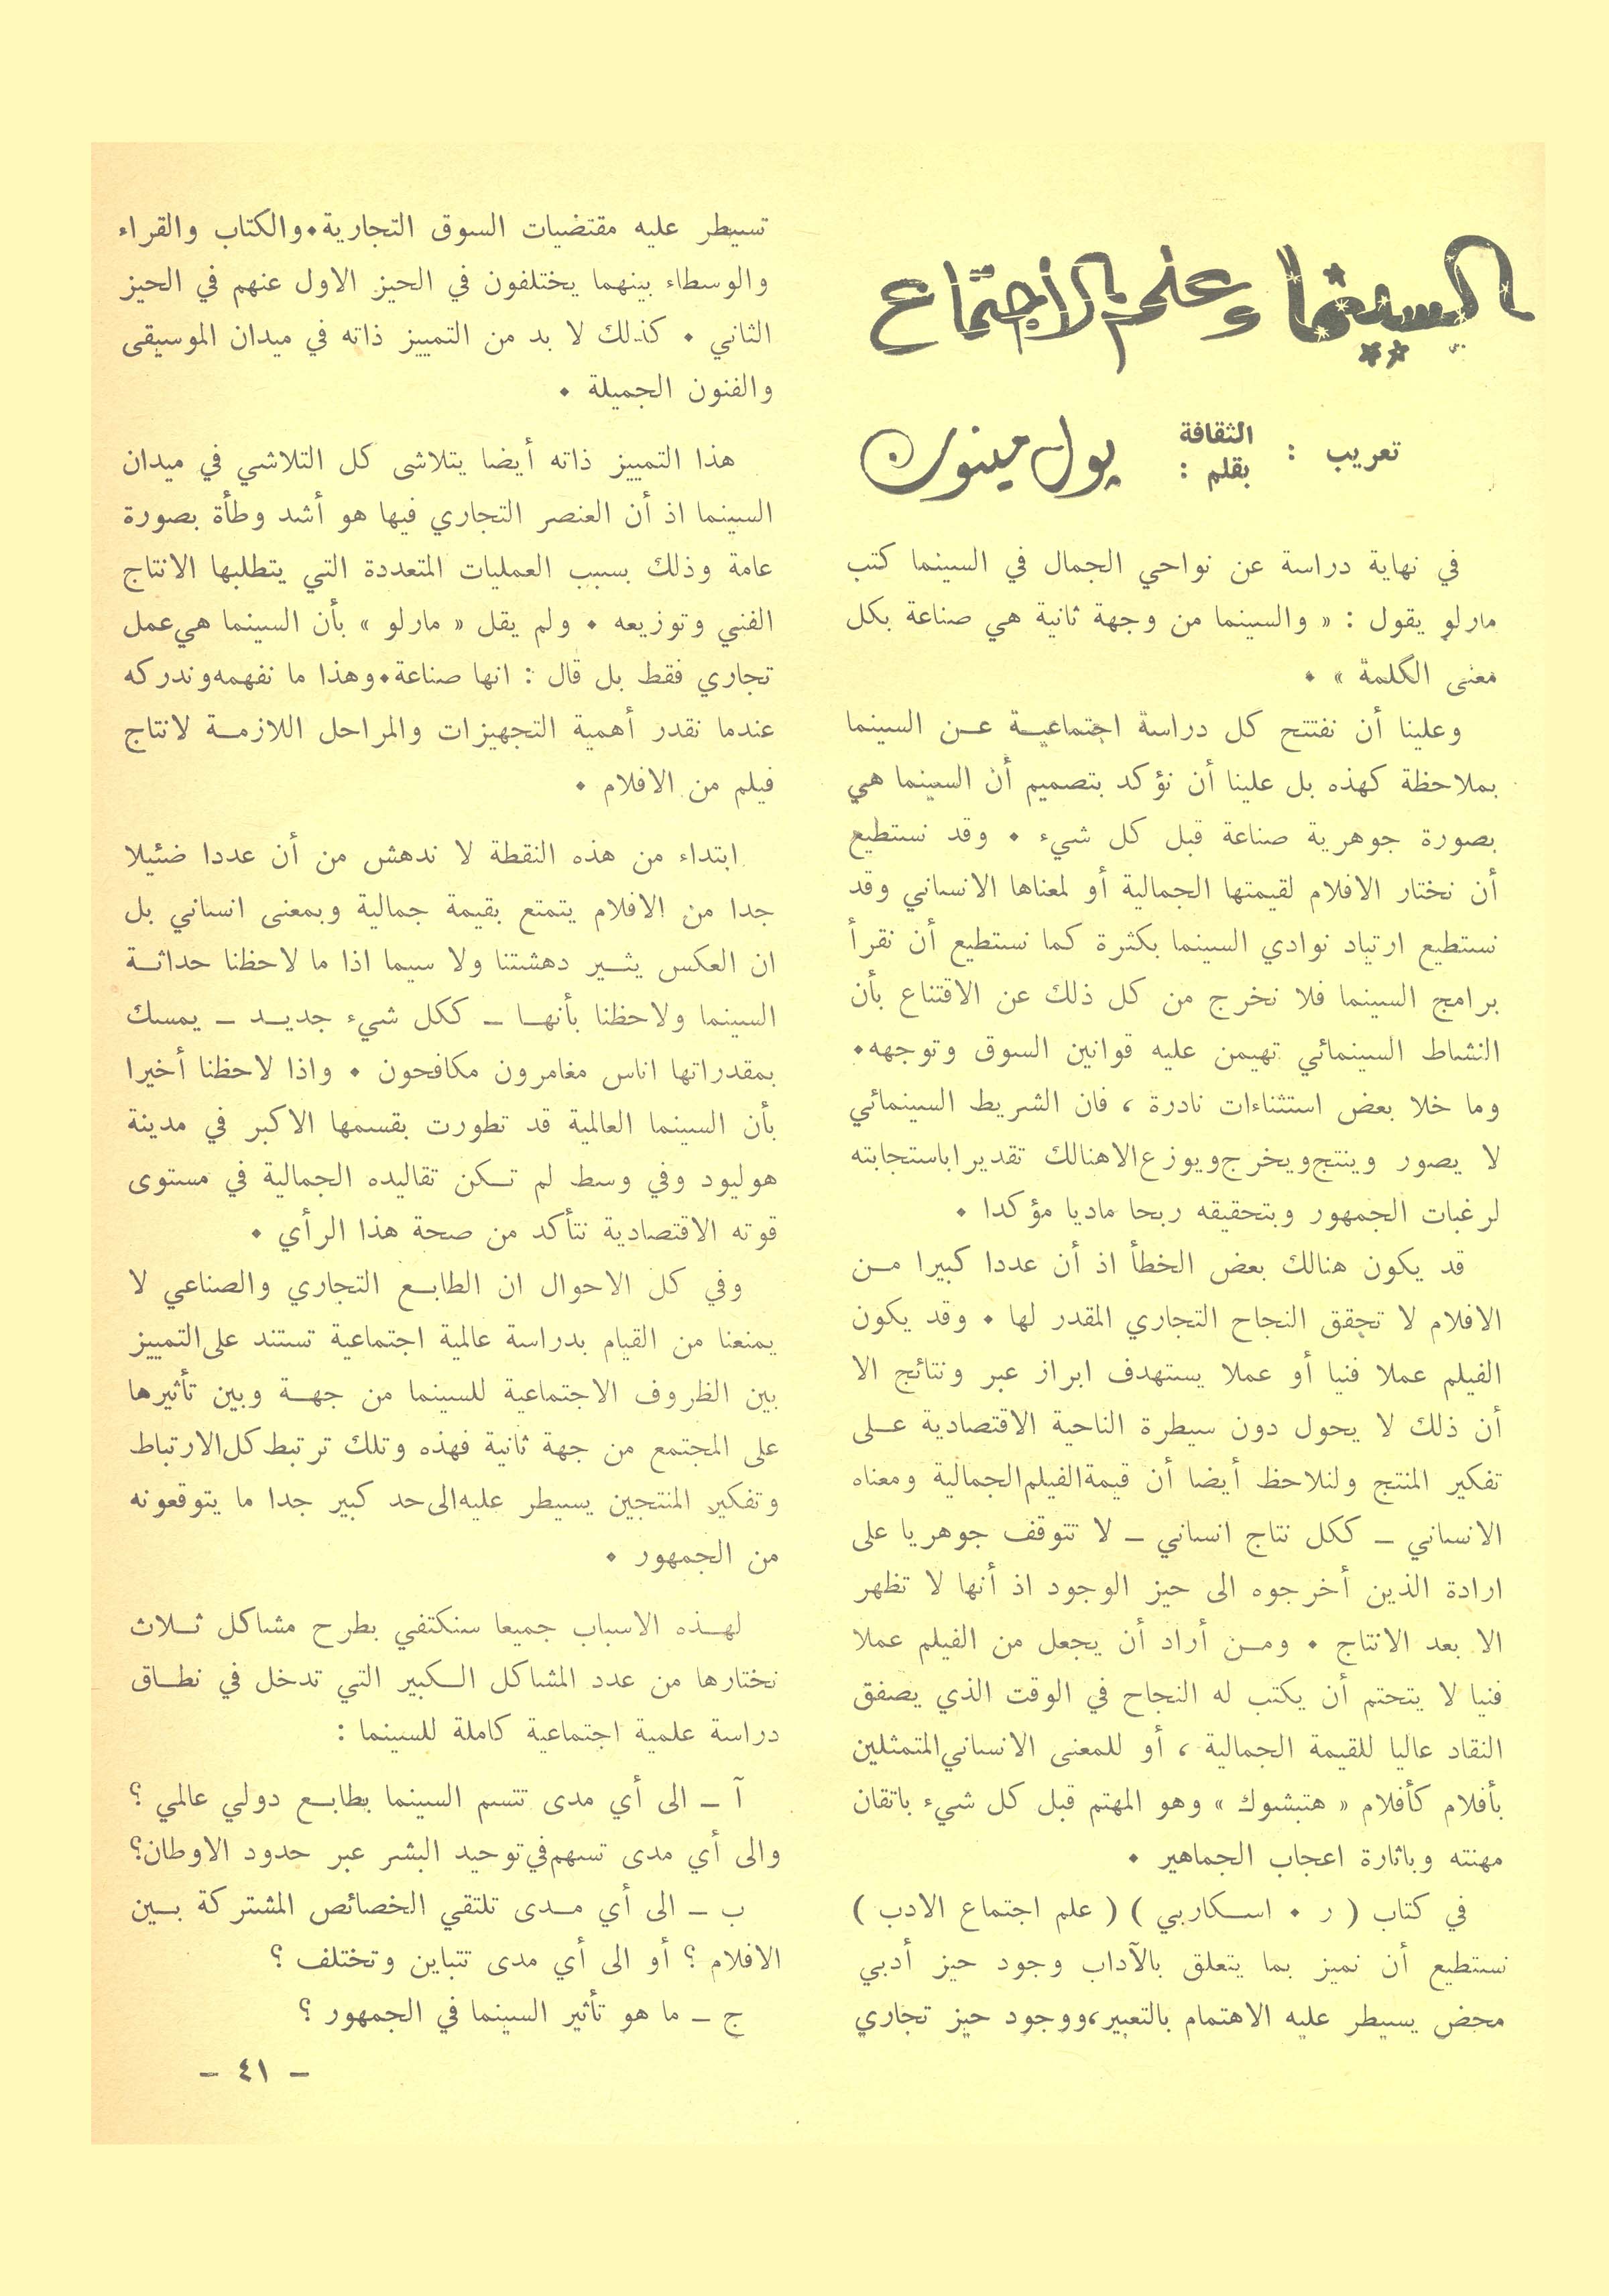 السينما وعلم الاجتماع
تعريب : الثقافة
بقلم : پول مينوك
في نهاية دراسة عن نواحي الجمال في السينما كتب
مارلو يقول : « والسينما من وجهة ثانية هي صناعة بكل
معنى الكلمة » •
وعلينا أن نفتتح كل دراسة اجتماعية عن السينما
بملاحظة كهذه بل علينا أن نؤكد بتصميم أن السينما هي
بصورة جوهرية صناعة قبل كل شيء • وقد نستطيع
أن نختار الافلام لقيمتها الجمالية أو لمعناها الانساني وقد
نستطيع ارتياد نوادي السينما بكثرة كما نستطيع أن نقرأ
برامج السينما فلا نخرج من كل ذلك عن الاقتناع بأن
النشاط السينمائي تهيمن عليه قوانين السوق وتوجهه•
وما خلا بعض استثناءات نادرة ، فان الشريط السينمائي
لا يصور وينتج ويخرج ويوزع الا هنالك تقديرا باستجابته
لرغبات الجمهور وبتحقيقه ربحا ماديا مؤكدا •
قد يكون هنالك بعض الخطأ اذ أن عددا كبيرا من
الافلام لا تحقق النجاح التجاري المقدر لها • وقد يكون
الفيلم عملا فنيا أو عملا يستهدف ابراز عبر ونتائج الا
أن ذلك لا يحول دون سيطرة الناحية الاقتصادية على
تفكير المنتج ولنلاحظ أيضا أن قيمة الفيلم الجمالية ومعناه
الانساني – ككل نتاج انساني – لا تتوقف جوهريا على
ارادة الذين أخرجوه الى حيز الوجود اذ أنها لا تظهر
الا بعد الانتاج • ومن أراد أن يجعل من الفيلم عملا
فنيا لا يتحتم أن يكتب له النجاح في الوقت الذي يصفق
النقاد عاليا للقيمة الجمالية ، أو للمعنى الانساني المتمثلين
بأفلام كأفلام « هتبشوك » وهو المهتم قبل كل شيء باتقان
مهنته وباثارة اعجاب الجماهير •
في كتاب ( ر • اسكاربي ) ( علم اجتماع الادب )
نستطيع أن نميز بما يتعلق بالآداب وجود حيز أدبي
محض يسيطر عليه الاهتمام بالتعبير، ووجود حيز تجاري
تسيطر عليه مقتضيات السوق التجارية•والكتاب والقراء
والوسطاء بينهما يختلفون في الحيز الاول عنهم في الحيز
الثاني • كذلك لا بد من التمييز ذاته في ميدان الموسيقى
والفنون الجميلة •
هذا التمييز ذاته أيضا يتلاشى كل التلاشي في ميدان
السينما اذ أن العنصر التجاري فيها هو أشد وطأة بصورة
عامة وذلك بسبب العمليات المتعددة التي يتطلبها الانتاج
الفني وتوزيعه • ولم يقل « مارلو » بأن السينما هي عمل
تجاري فقط بل قال : انها صناعة•وهذا ما نفهمه وندركه
عندما نقدر أهمية التجهيزات والمراحل اللازمة لانتاج
فيلم من الافلام •
ابتداء من هذه النقطة لا ندهش من أن عددا ضئيلا
جدا من الافلام يتمتع بقيمة جمالية وبمعنى انساني بل
ان العكس يثير دهشتنا ولا سيما اذا ما لاحظنا حداثة
السينما ولاحظنا بأنها – ككل شيء جديد – يمسك
بمقدراتها اناس مغامرون مكافحون • واذا لاحظنا أخيرا
بأن السينما العالمية قد تطورت بقسمها الاكبر في مدينة
هوليود وفي وسط لم تكن تقاليده الجمالية في مستوى
قوته الاقتصادية نتأكد من صحة هذا الرأي •
وفي كل الاحوال ان الطابع التجاري والصناعي لا
يمنعنا من القيام بدراسة عالمية اجتماعية تستند على التمييز
بين الظروف الاجتماعية للسينما من جهة وبين تأثيرها
على المجتمع من جهة ثانية فهذه وتلك ترتبط كل الارتباط
وتفكير المنتجين يسيطر عليه الى حد كبير جدا ما يتوقعونه
من الجمهور •
لهذه الاسباب جميعا سنكتفي بطرح مشاكل ثلاث
نختارها من عدد المشاكل الكبير التي تدخل في نطاق
دراسة علمية اجتماعية كاملة للسينما :
آ – الى أي مدى تتسم السينما بطابع دولي عالمي ؟
والى أي مدى تسهم في توحيد البشر عبر حدود الاوطان؟
ب – الى أي مدى تلتقي الخصائص المشتركة بين
الافلام ؟ أو الى أي مدى تتباين وتختلف ؟
ج – ما هو تأثير السينما في الجمهور ؟
– ٤١ –